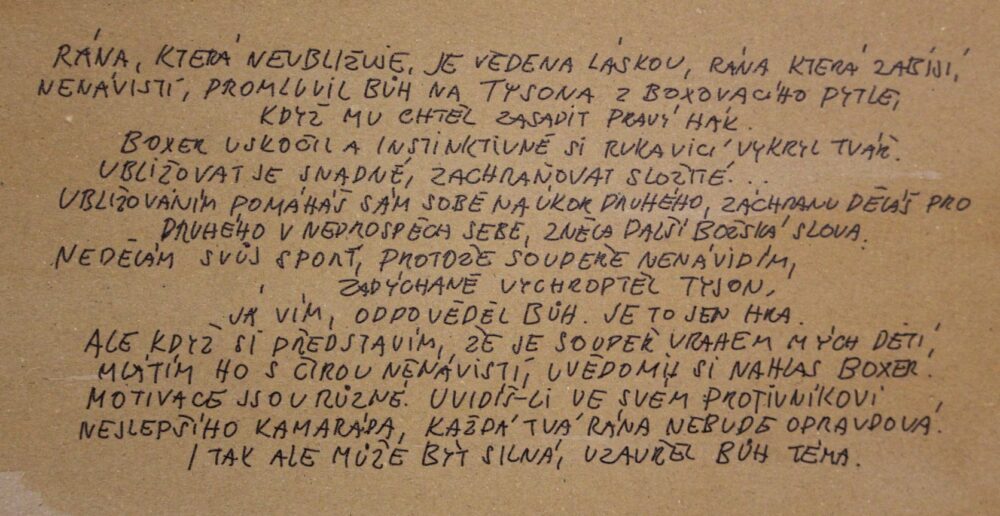 RÁNA, KTERÁ NEUBLIŽUJE, JE VEDENA LÁSKOU, RÁNA KTERÁ ZABÍJÍ,
NENÁVISTÍ, PROMLUVIL BŮH NA TYSONA Z BOXOVACÍHO PYTLE,
KDYŽ MU CHTĚL ZASADIT PRAVÝ HÁK.
BOXER USKOČIL A INSTINKTIVNĚ SI RUKAVICÍ VYKRYL TVÁŘ.
UBLIŽOVAT JE SNADNÉ, ZACHRAŇOVAT SLOŽITÉ...
UBLIŽOVÁNÍM POMÁHÁŠ SÁM SOBĚ NA ÚKOR DRUHÉHO, ZÁCHRANU DĚLÁŠ PRO
DRUHÉHO V NEPROSPĚCH SEBE, ZNĚLA DALŠÍ BOŽSKÁ SLOVA.
NEDĚLÁM SVŮJ SPORT, PROTOŽE SOUPEŘE NENÁVIDÍM,
ZADÝCHANĚ VYCHROPTĚL TYSON,
JÁ VÍM, ODPOVĚDĚL BŮH. JE TO JEN HRA.
ALE KDYŽ SI PŘEDSTAVÍM, ŽE JE SOUPEŘ VRAHEM MÝCH DĚTÍ,
MLÁTÍM HO S ČIROU NENÁVISTÍ, UVĚDOMIL SI NAHLAS BOXER.
MOTIVACE JSOU RŮZNÉ. UVIDÍŠ-LI VE SVÉM PROTIVNÍKOVI
NEJLEPŠÍHO KAMARÁDA, KAŽDÁ TVÁ RÁNA NEBUDE OPRAVDOVÁ.
I TAK ALE MŮŽE BÝT SILNÁ, UZAVŘEL BŮH TÉMA.